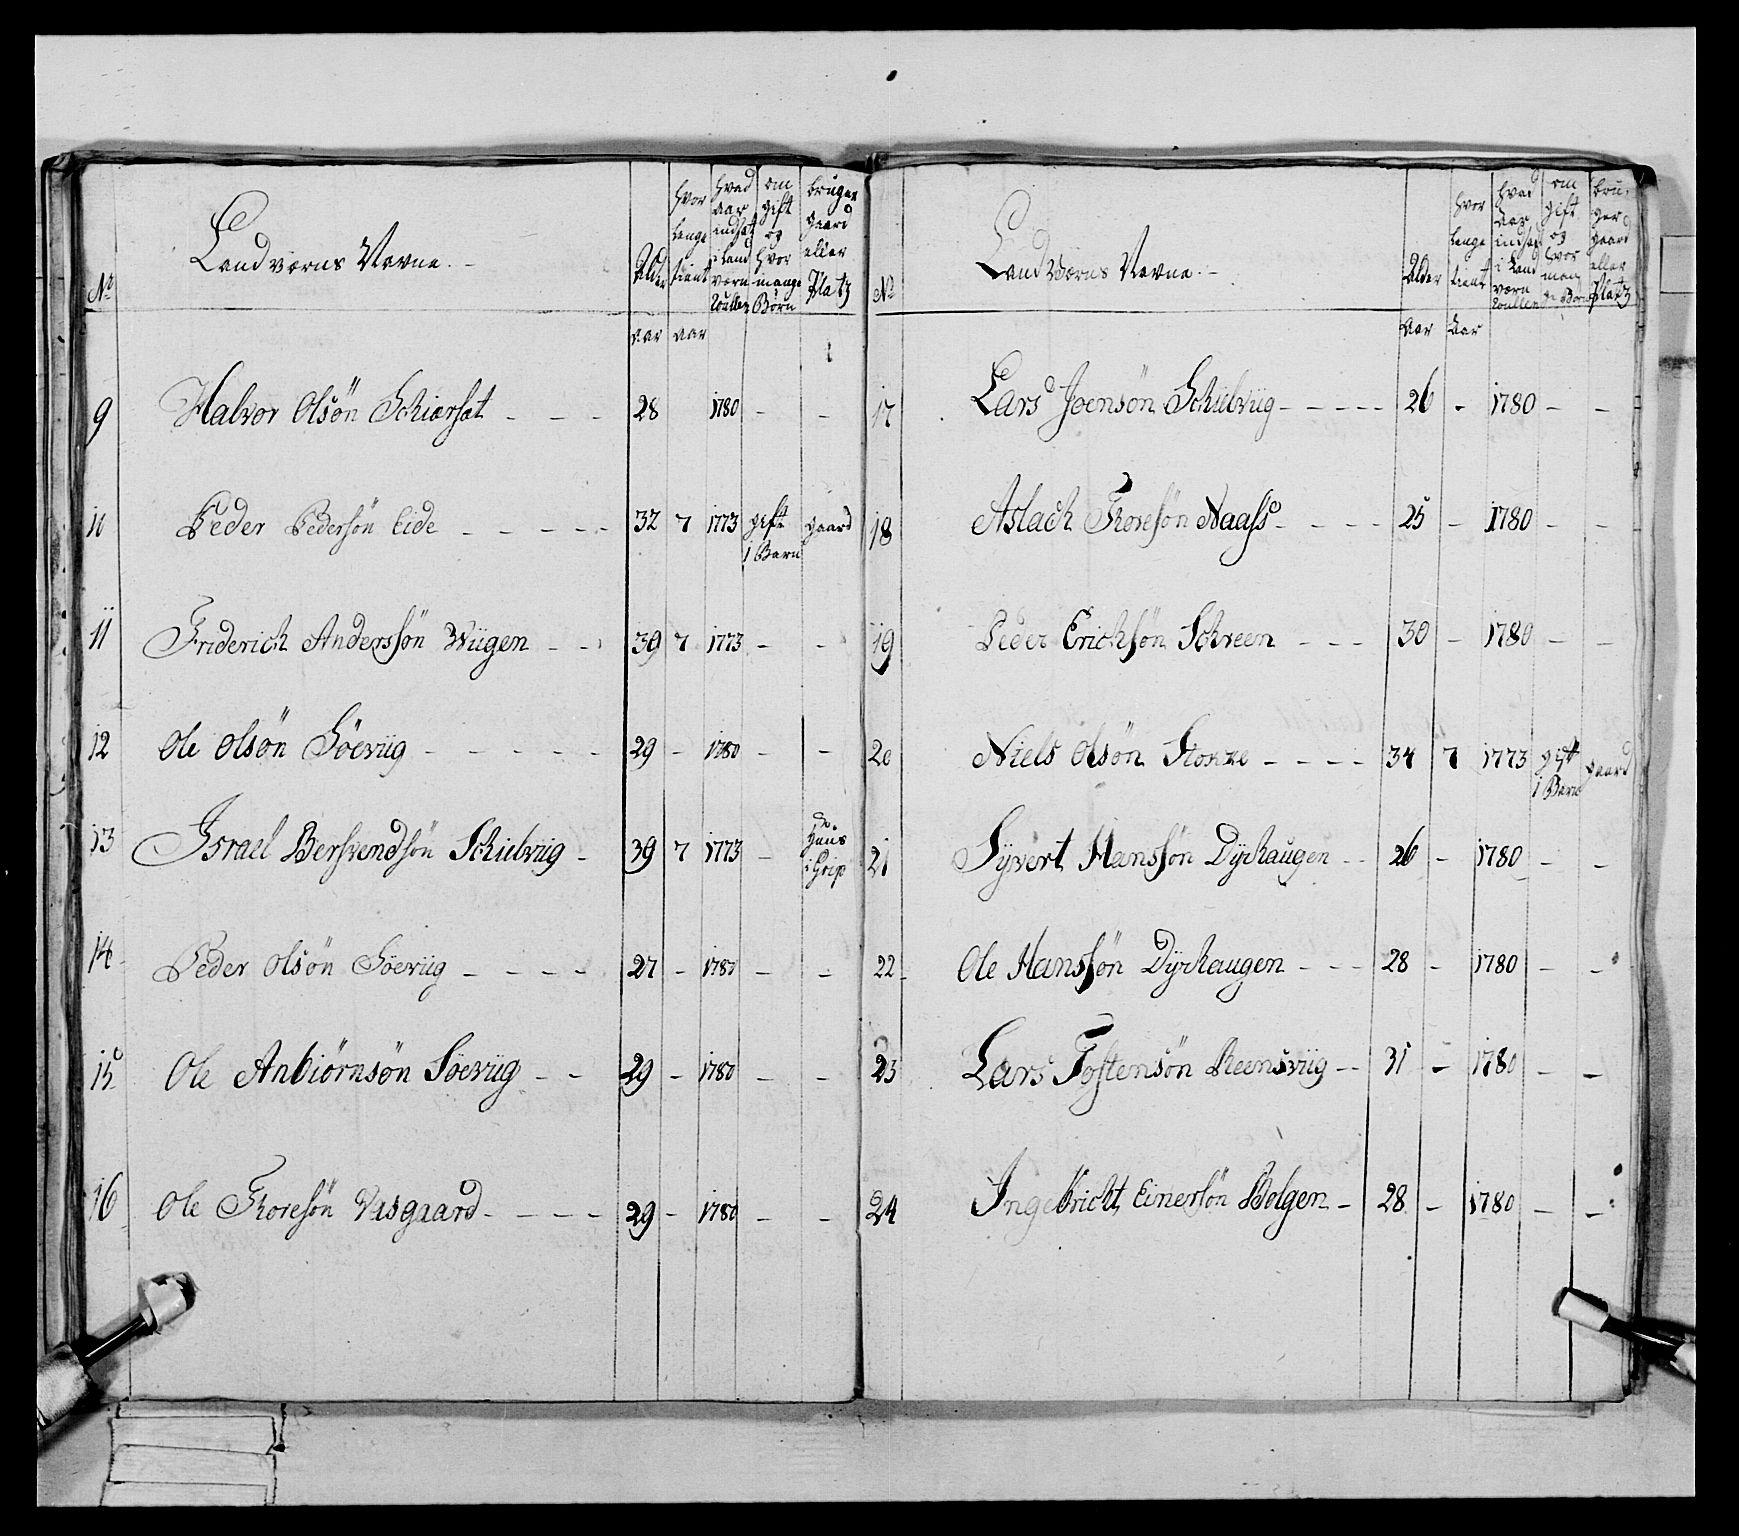 No
Landværns Navne.
Alder
hvor lenge tient
hvad Aar indsat i Land værn Roullen
om gift og hvor mange Børn
bruger gaard eller Platz
aar aar
9 Halvor Olsön Schiærsæt - - - 28 1780 - -
10 Peder Pedersön Eide - - - - 32 7 1773 gift 1 Barn gaard
11 Friderich Anderssön Wiigen - - 39 7 1773 - -
12 Ole Olsön Söeviig - - - - - 29 - 1780 - -
13 Israel Bersvendsön Schielviig - 39 7 1773 - Huus i Grip
14 Peder Olsön Söeviig - - - - 27 - 1780 - -
15 Ole Anbiörnsön Söeviig - - 29 - 1780 - -
16 Ole Thoresön Vasgaard - - - - 29 - 1780 - -
No
Land Værns Navne.
Alder
hvor lenge tient
hvad Aar indsat i Land værn Roullen
om gift og hvor man ge Børn
bru- ger gaard eller Platz
Aar Aar
17 Lars Joensön Schielviig - - - - - 26 - 1780 - -
18 Aslach Thoresön Naass - - - - 25 - 1780 - -
19 Peder Erichsön Schreen - - - 30 - 1780 - -
20 Niels Olsön - - - - 34 7 1773 gift 1 Barn gaard
21 Syvert Hanssön Dyrhaugen - - 26 - 1780 - -
22 Ole Hanssön Dyrhaugen - - - 28 - 1780 - -
23 Lars Tostensön Reensviig - - 31 - 1780 - -
24 Ingebricht Einersön Bolgen - 28 - 1780 - -